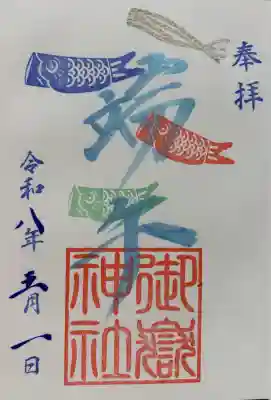 奉拝
端午
御嶽
神社
令和八年五月一日